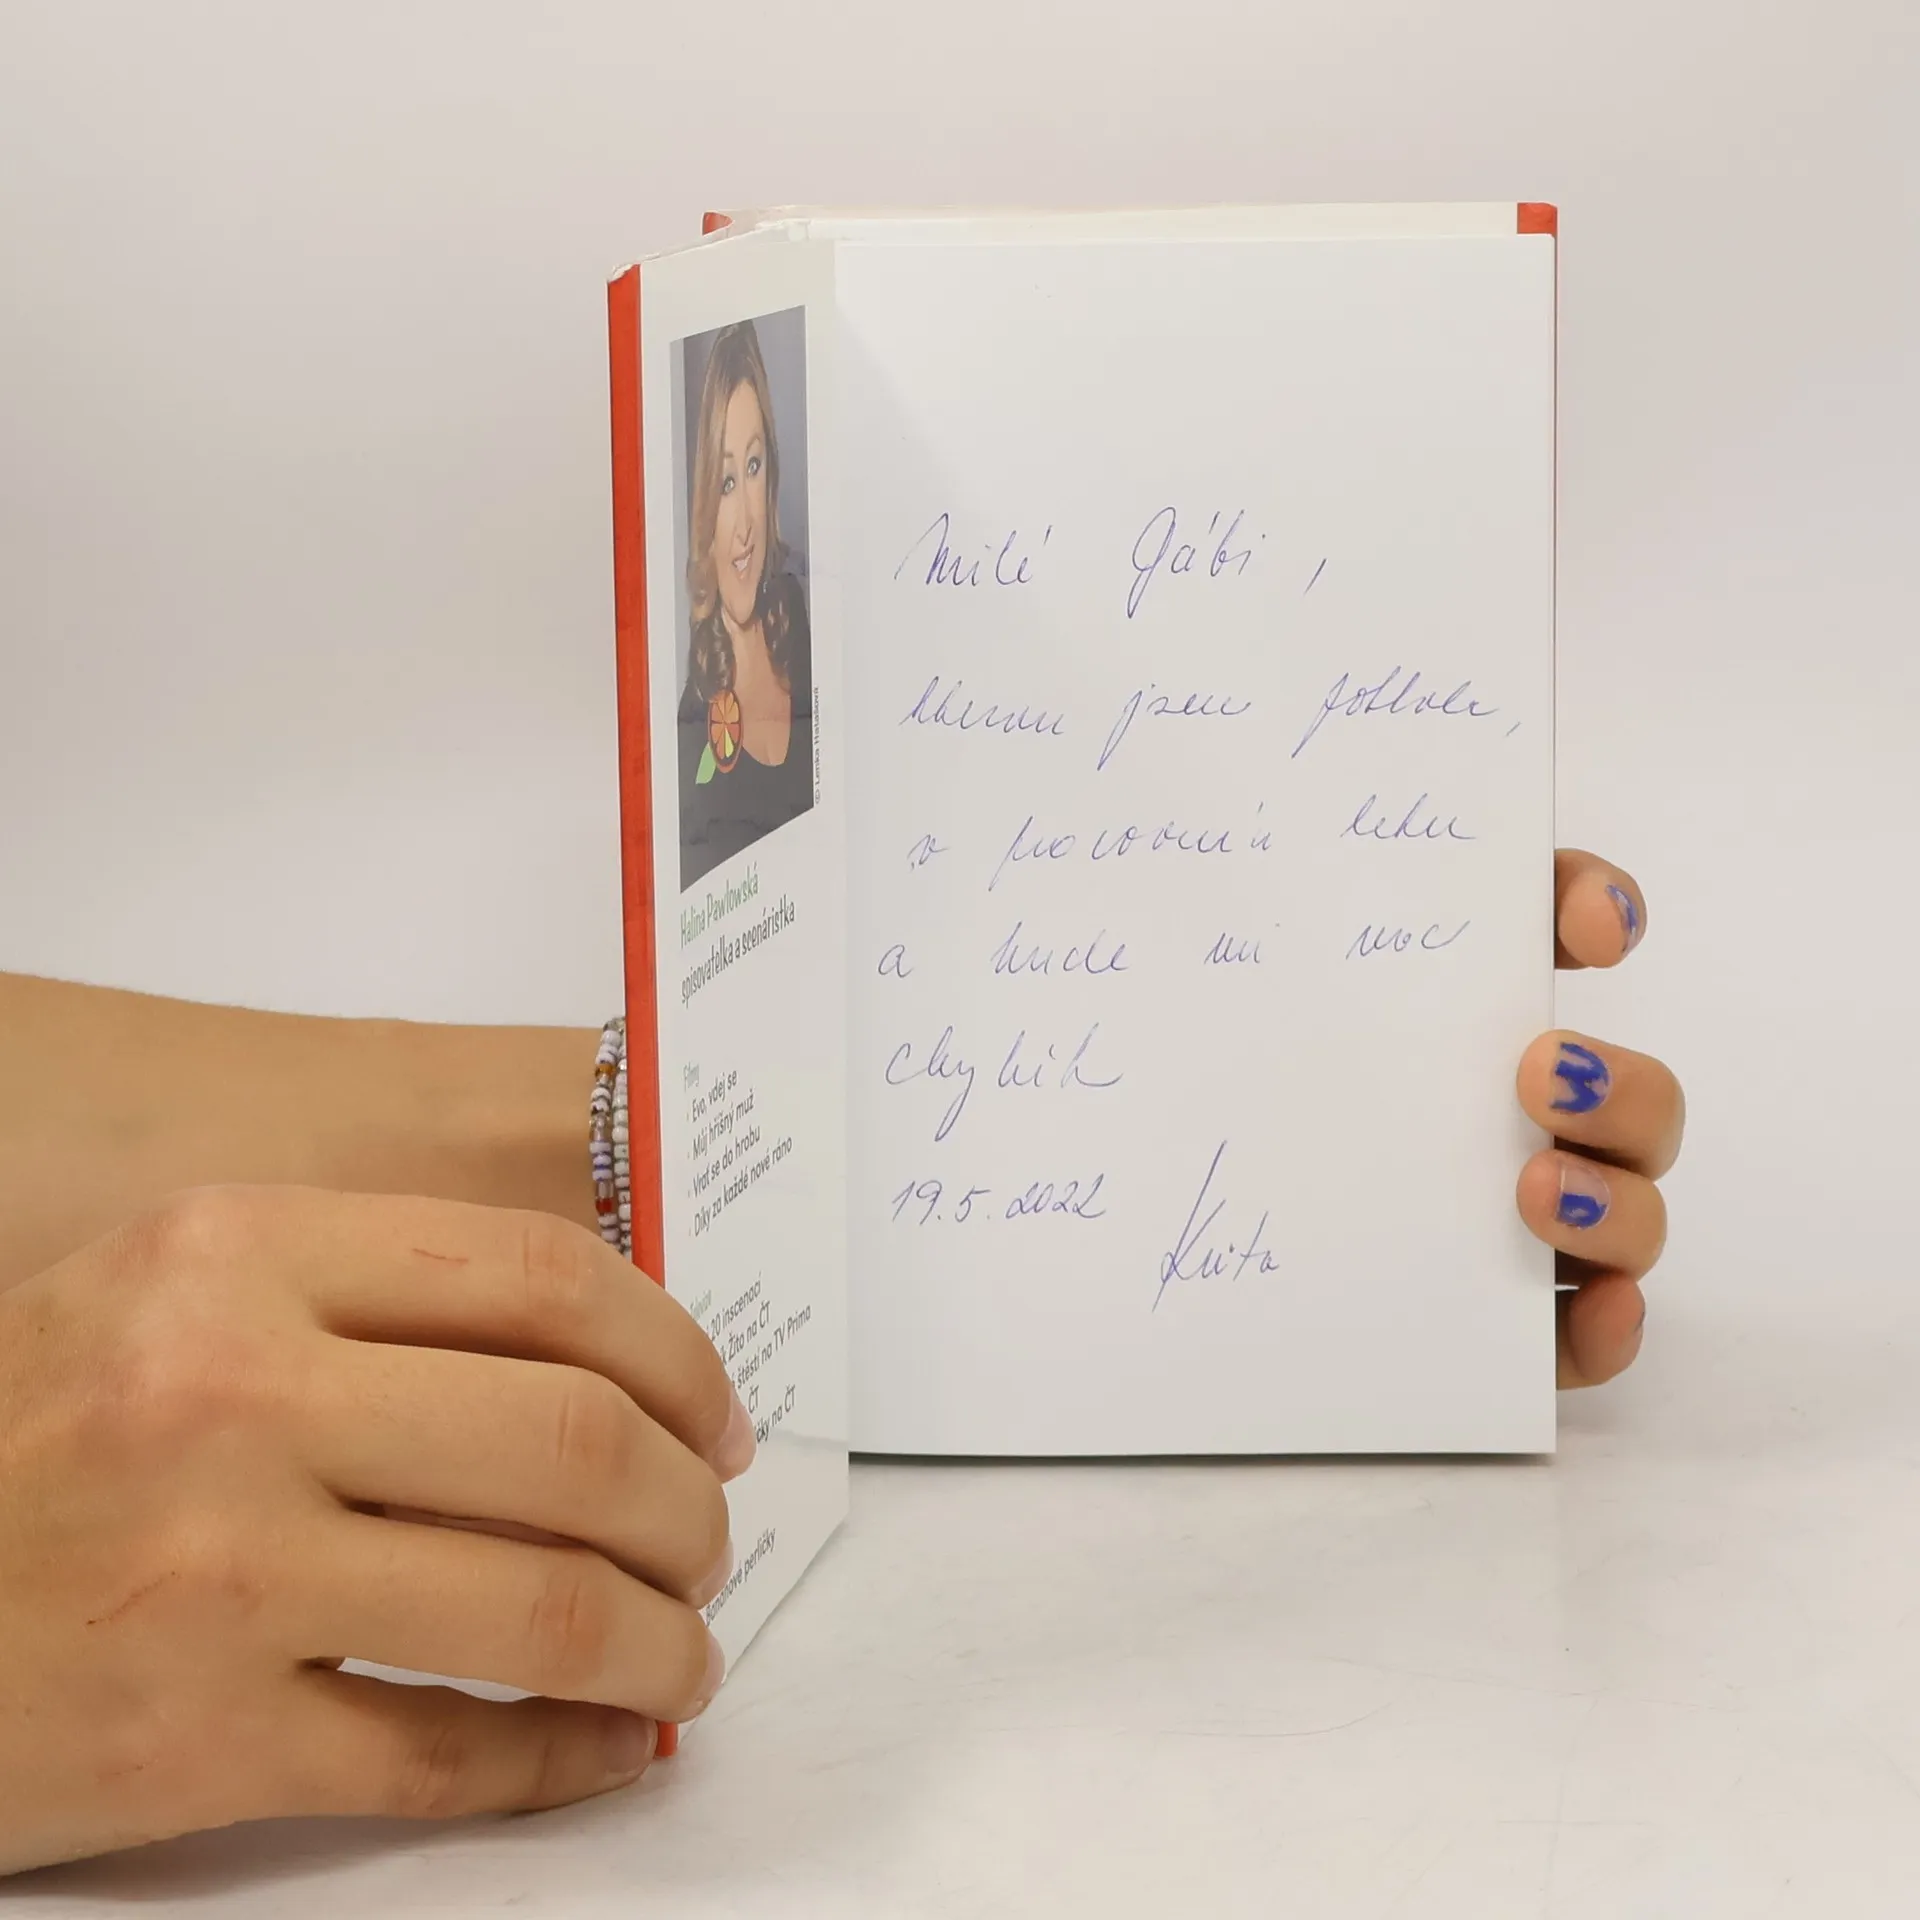 © Lenka Hatašová
Halina Pawlowská
spisovatelka a scenáristka
Filmy
• Evo, vdej se
• Můj hříšný muž
• Vrať se do hrobu
• Díky za každé nové ráno
20 inscenací
Žito na ČT
štěstí na TV Prima
ČT
na ČT
Banánové perličky
Milé Gábi,
kterou jsem potkala,
v pracovním
a bude mi moc
chybět
19.5.2022
Květa